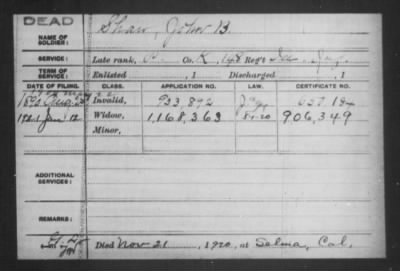 DEAD
NAME OF SOLDIER: Shaw, John B.
SERVICE: Late rank, Co. K, 148 Reg't Ill. Inf.
TERM OF SERVICE: Enlisted , 1 Discharged , 1
DATE OF FILING. CLASS. APPLICATION NO. LAW. CERTIFICATE NO.
Invalid, 933,892
1921 Jan 12 Widow, 1,168,363 906,349
Minor,
ADDITIONAL SERVICES:
REMARKS:
Died Nov 21 , 1920, at Selma, Cal.